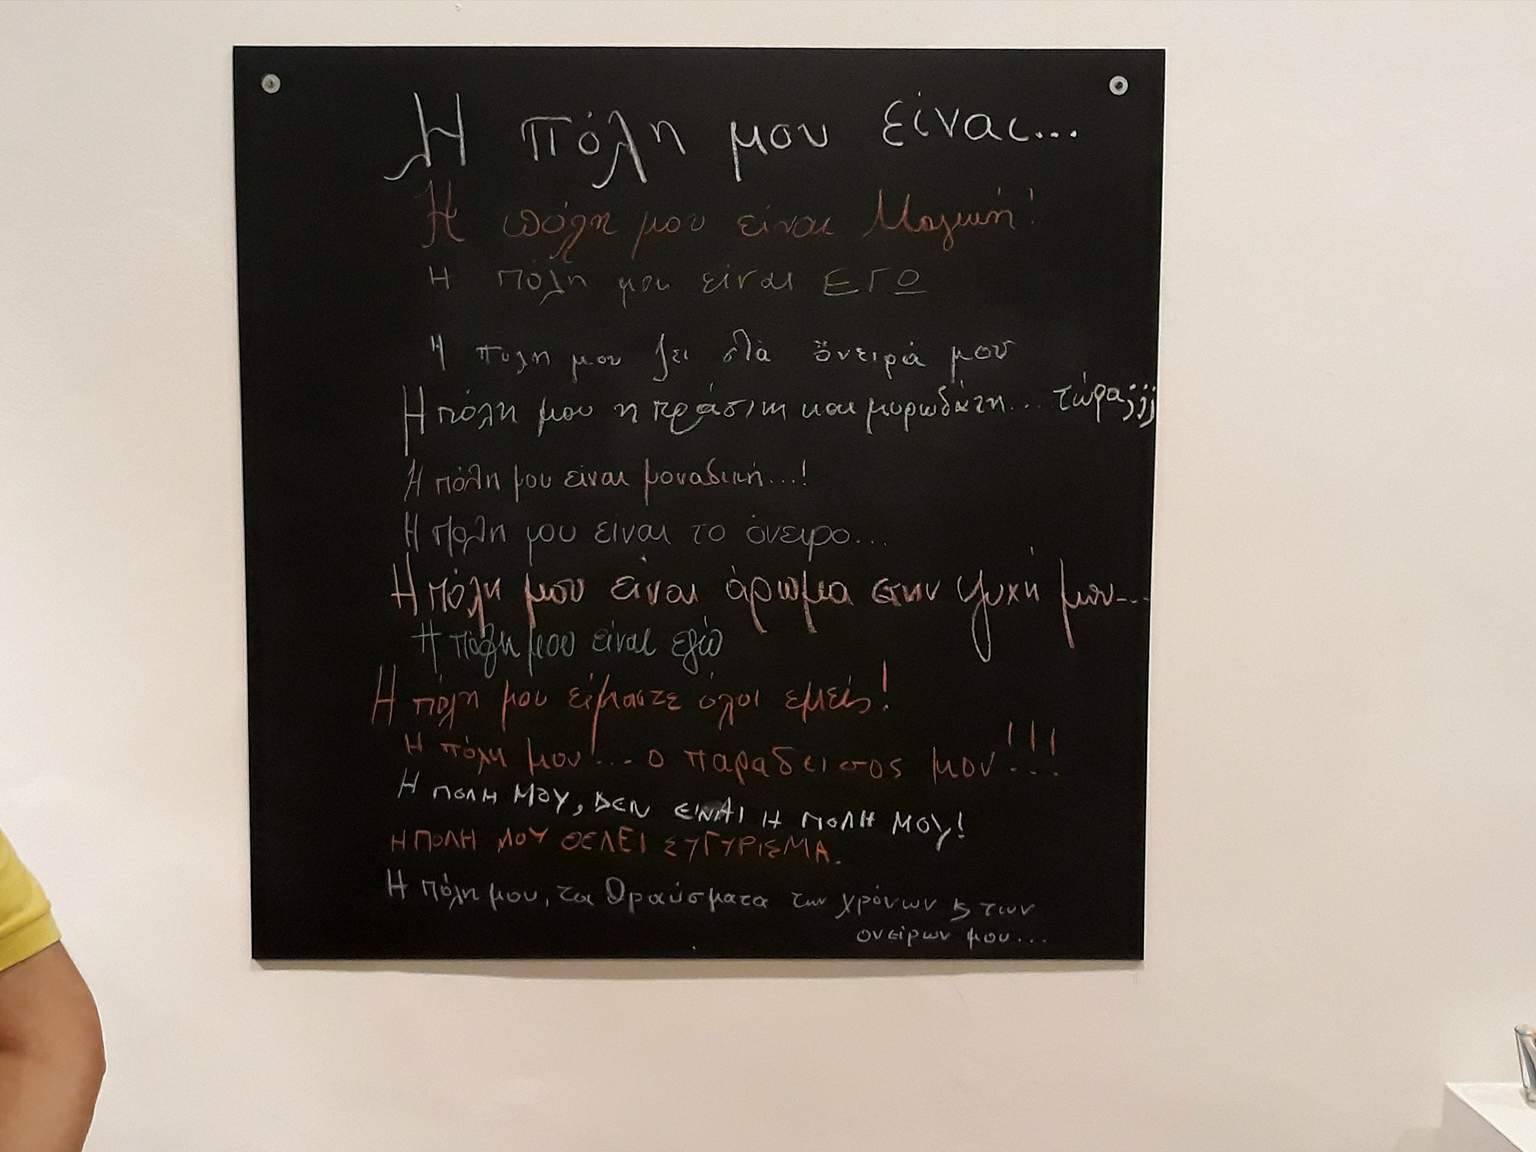 Η πόλη μου είναι...
Η πόλη μου είναι Μαγική!
Η πόλη μου είναι ΕΓΩ
Η πολη μου ζει στα όνειρά μου
Η πόλη μου η πράσινη και μυρωδάτη... τώρα;;;
Η πόλη μου είναι μοναδική...!
Η πόλη μου είναι το όνειρο...
Η πόλη μου είναι άρωμα στην ψυχή μου...
Η πόλη μου είναι εγώ
Η πόλη μου είμαστε όλοι εμείς!
Η πόλη μου... ο παραδεισος μου!!!
Η ΠΟΛΗ ΜΟΥ, ΔΕΝ ΕΙΝΑΙ Η ΠΟΛΗ ΜΟΥ!
Η ΠΟΛΗ ΜΟΥ ΘΕΛΕΙ ΣΥΓΥΡΙΣΜΑ.
Η πόλη μου, τα θραύσματα των χρόνων ϗ των
ονείρων μου...